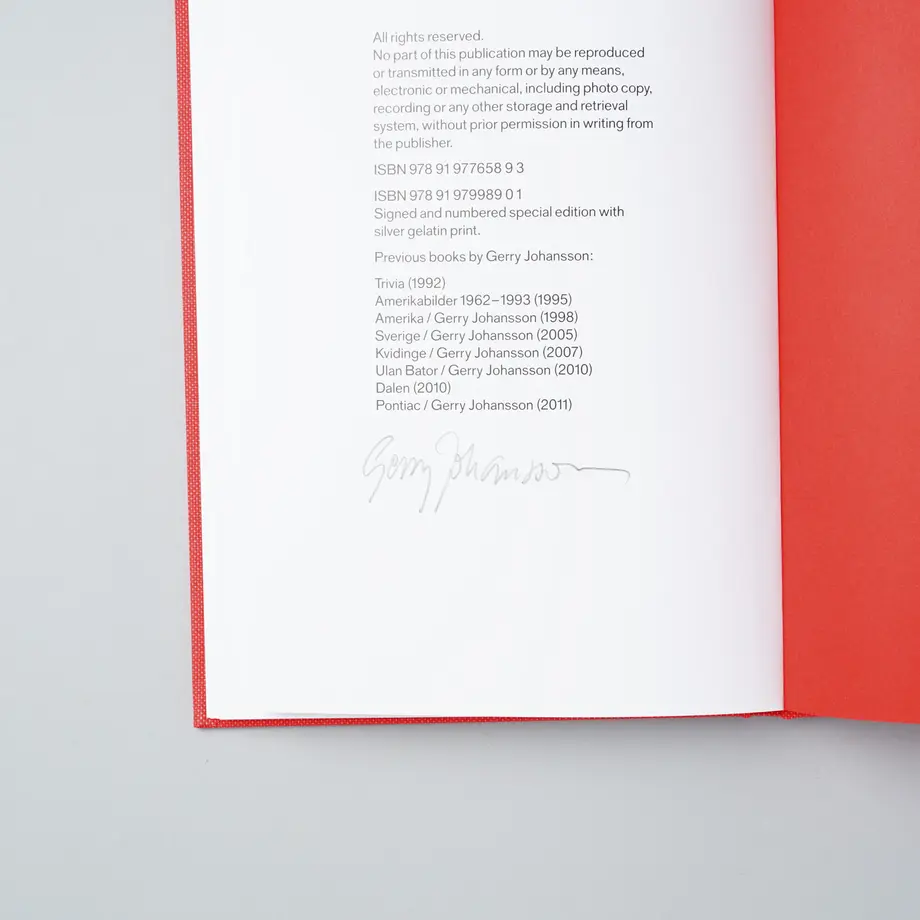 All rights reserved.
No part of this publication may be reproduced
or transmitted in any form or by any means,
electronic or mechanical, including photo copy,
recording or any other storage and retrieval
system, without prior permission in writing from
the publisher.
ISBN 978 91 977658 9 3
ISBN 978 91 979989 0 1
Signed and numbered special edition with
silver gelatin print.
Previous books by Gerry Johansson:
Trivia (1992)
Amerikabilder 1962–1993 (1995)
Amerika / Gerry Johansson (1998)
Sverige / Gerry Johansson (2005)
Kvidinge / Gerry Johansson (2007)
Ulan Bator / Gerry Johansson (2010)
Dalen (2010)
Pontiac / Gerry Johansson (2011)
Gerry Johansson